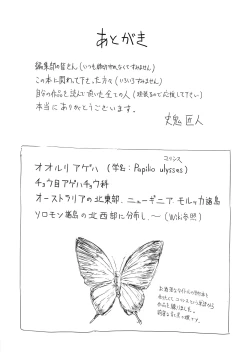 あとがき
編集部の皆さん(いつも締切やぶなくてすみません)
この本に関わて下さった方々(いろいろすみません)
自分の作品を読んで頂いた全ての人(頑張るので応援して下さい)
本当にありがとうございます。
匠人
コリシス
オオルリアゲハ(学名:Papilio ulysses)
チョウ目アゲハチョウ科
オーストラリアの北東部、ニューギニア モルッカ諸島
ソロモン諸島の北西部に分布し、~(Wiki参照)